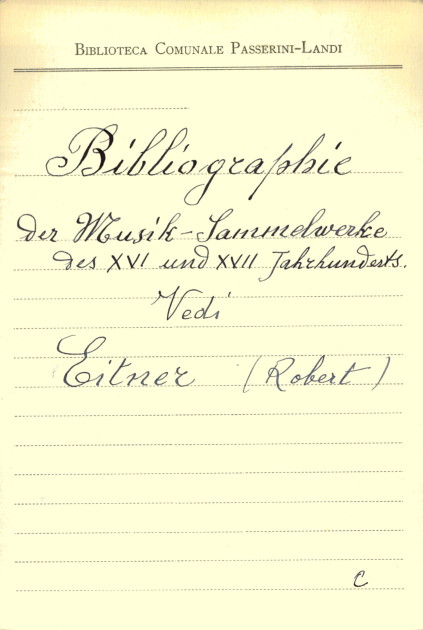 Biblioteca Comunale Passerini-Landi
Bibliographie
der Musik-Sammelwerke
des XVI und XVII Jahrhunderts.
Vedi
Eitner (Robert)
C